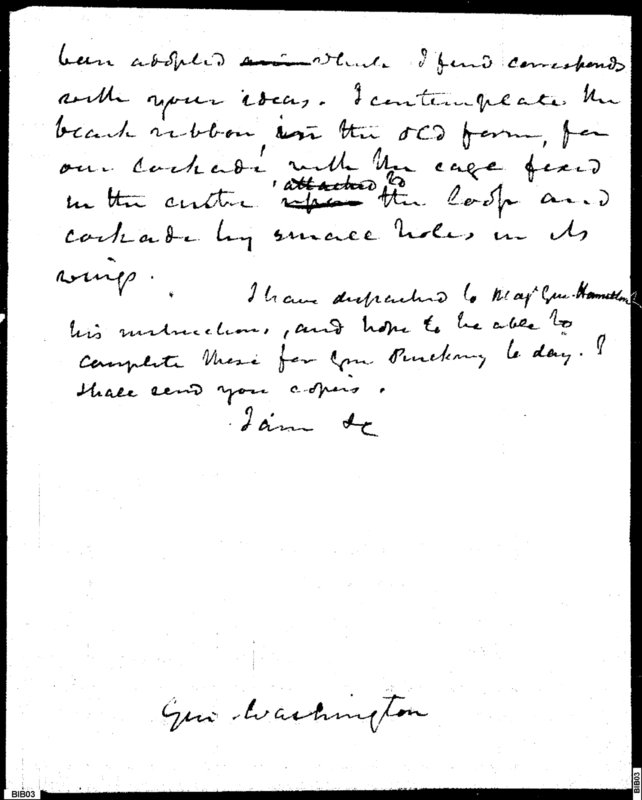 been adopted which I find corresponds
with your ideas. I contemplate the
black ribbon, in the old form, for
our cockade, with the eagle fixed
in the center attached to upon the loop and
cockade by small holes in its
wings.
I have dispatched to Maj Gen. Hamilton
his instructions, and hope to be able to
complete those for Gen. Pinckney to day. I
shall send you copies.
I am &c
Gen Washington
BIB03
BIB03